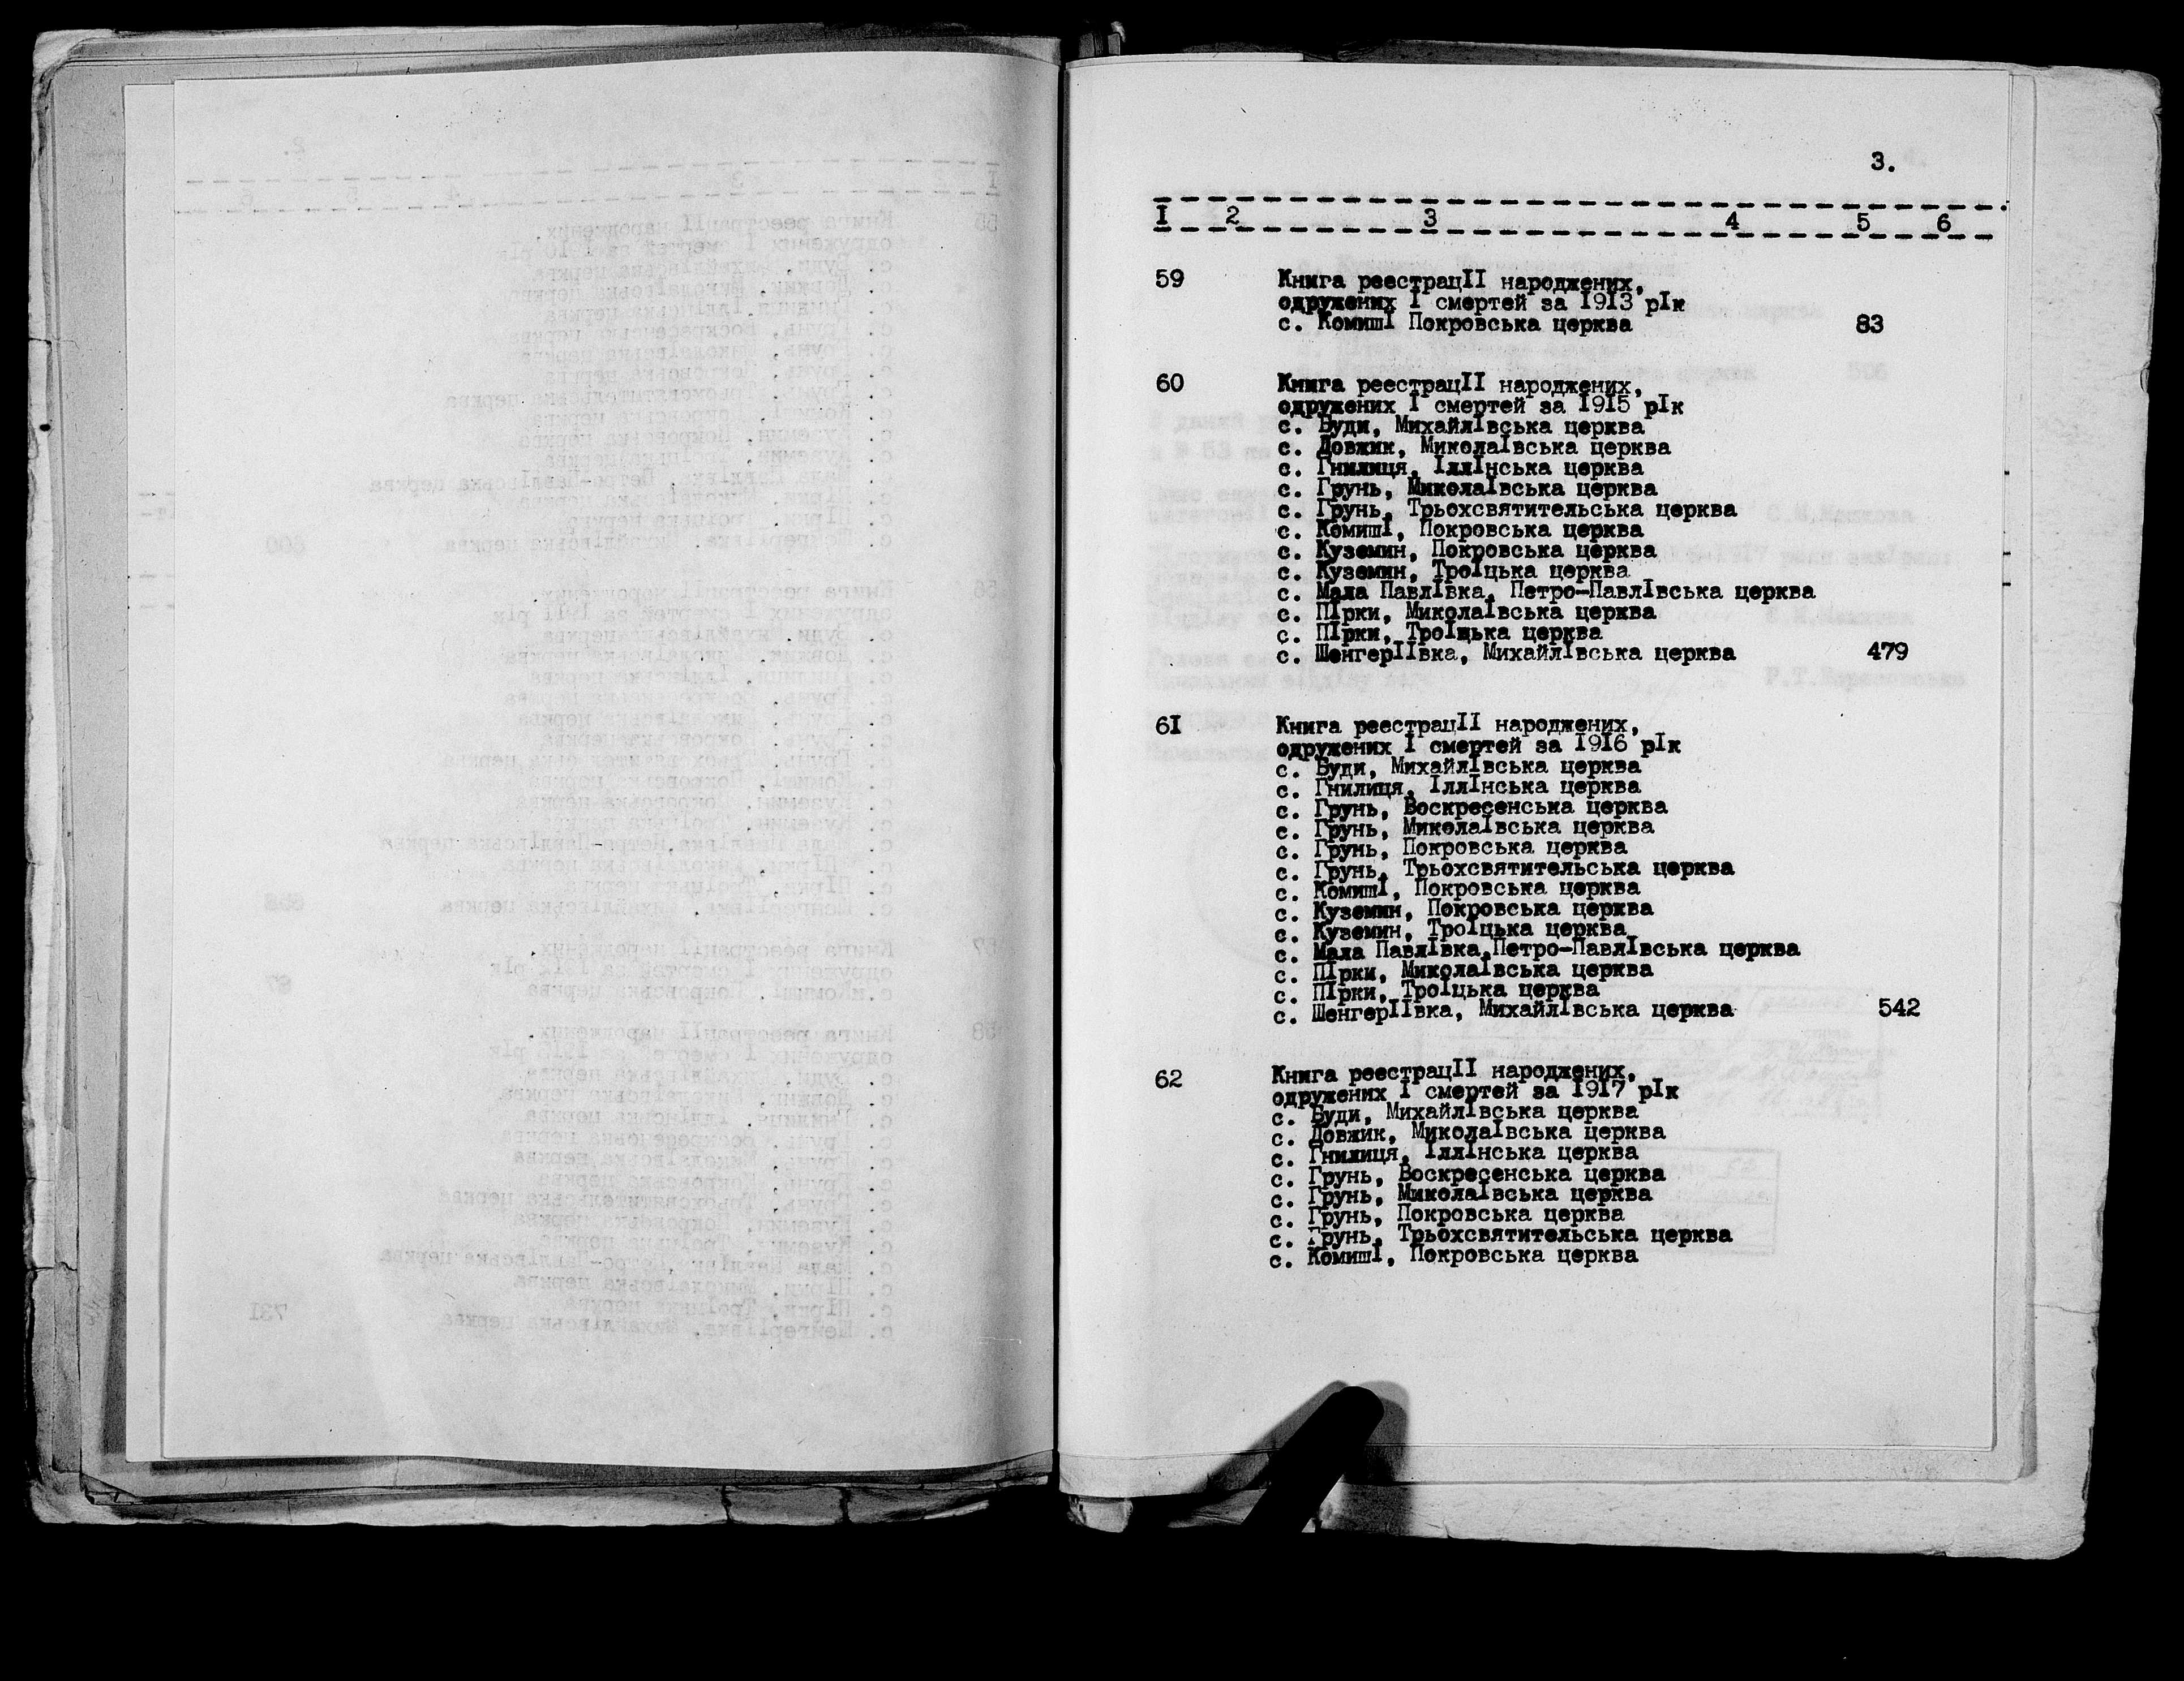 3.
I 2 3 4 5 6
59 Книга реестрацII народжених,
одружених I смертей за 1913 рIк
с. КомишI Покровська церква 83
60 Книга реестрацII народжених,
одружених I смертей за 19I5 рIк
с. Буди, МихайлIвська церква
с. Довжик, МиколаIвська церква
с. Гнилиця, IллIнська церква
с. Грунь, МиколаIвська церква
с. Грунь, Трьохсвятительська церква
с. КомишI, Покровська церква
с. Куземин, Покровська церква
с. Куземин, ТроIцька церква
с. Мала ПавлIвка, Петро-ПавлIвська церква
с. ПIрки, МиколаIвська церква
с. ПIрки, ТроIцька церква
с. ШенгерIIвка, МихайлIвська церква 479
6I Книга реестрацII народжених,
одружених I смертей за 19I6 рIк
с. Буди, МихайлIвська церква
с. Гнилиця, IллIнська церква
с. Грунь, Воскресенська церква
с. Грунь, МиколаIвська церква
с. Грунь, Покровська церква
с. Грунь, Трьохсвятительська церква
с. КомишI, Покровська церква
с. Куземин, Покровська церква
с. Куземин, ТроIцька церква
с. Мала ПавлIвка,Петро-ПавлIвська церква
с. ПIрки, МиколаIвська церква
с. ПIрки, ТроIцька церква
с. ШенгерIIвка, МихайлIвська церква 542
62 Книга реестрацII народжених,
одружених I смертей за 19I7 рIк
с. Буди, МихайлIвська церква
с. Довжик, МиколаIвська церква
с. Гнилиця, IллIнська церква
с. Грунь, Воскресенська церква
с. Грунь, МиколаIвська церква
с. Грунь, Покровська церква
с. Грунь, Трьохсвятительська церква
с. КомишI, Покровська церква